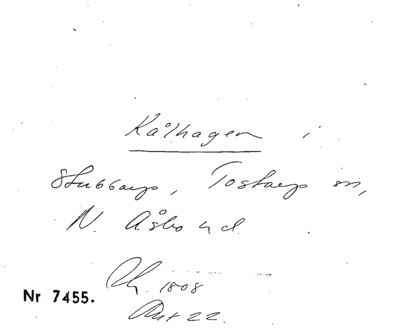 Kålhagen i
Stubbarp, Tostarp sn,
N. Åsbo hd.
Rh. 1808
Nr 7455.
Art 22.